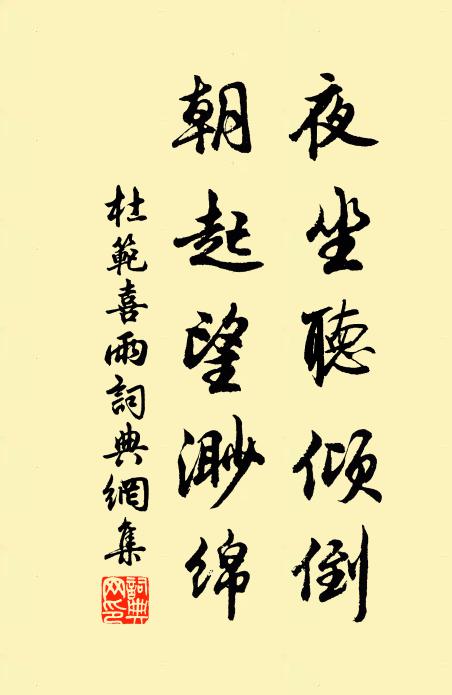 夜坐聽傾倒
朝起望渺綿
杜範喜雨詞典網集
詞典网印